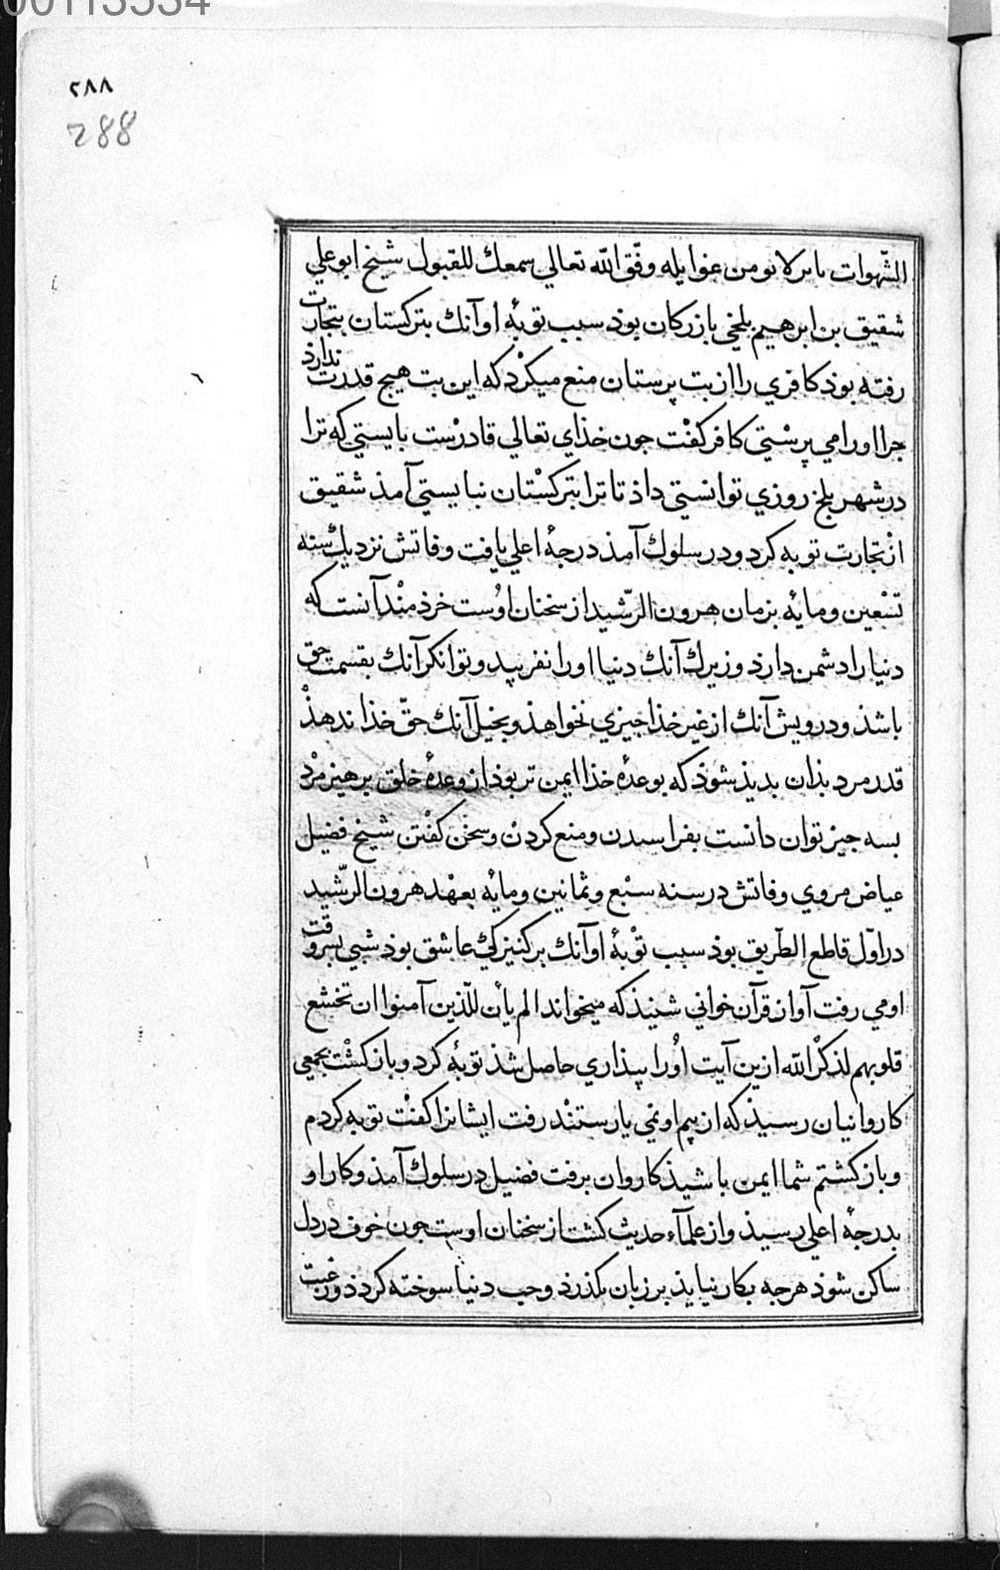 00113534
٢٨٨
288
الشّهوات بابر كلا نومن غوايله وفّق الله تعالي سمعك للقبول شيخ ابو علي
شقيق بن ابرهيم بلخي بازركان بوذ سبب توبهٔ او آنك بتركستان بتجارت
رفته بوذ كافري را از بت پرستان منع ميكرد كه اين بت هيچ قدرت ندارذ
جرا اورا مي پرستي كافر كفت جون خذاي تعالي قادرست بايستي كه ترا
در شهر بلخ روزي توانستي داذ تا ترا بتركستان نبايستي آمذ شقيق
از تجارت توبه كرد و در سلوك آمذ درجهٔ اعلي يافت وفاتش نزديك سنه
تسعين ومايهٔ بزمان هرون الرّشيد از سخنان اوست خرذمند آنست كه
دنيا را دشمن دارذ و زيرك آنك دنيا اورا نفريبد وتوانكر آنك بقسمت حق
باشذ و درويش آنك از غير خذا جيزي نخواهذ وبخيل آنك حقّ خذا ندهذ
قدر مرد بذان بديذ شوذ كه بوعدهٔ خذا ايمن تر بوذ از وعدهٔ خلق برهيز مرد
بسه جيز توان دانست بفراسيدن ومنع كردن وسخن كفتن شيخ فضيل
عياض مروي وفاتش در سنه سبع وثمانين ومايه بعهد هرون الرّشيد
در اوّل قاطع الطّريق بوذ سبب توبهٔ او آنك بر كنيزكي عاشق بوذ شبي بسروقت
او مي رفت آواز قرآن خواني شنيذ كه ميخواند الم يأن للّذين آمنوا ان تخشع
قلوبهم لذكر الله ازين آيت اورا بيذاري حاصل شذ توبهٔ كرد و باز كشت بجمعي
كاروانيان رسيذ كه از بيم او نمي يارستند رفت ايشانرا كفت توبه كردم
و باز كشتم شما ايمن باشيذ كاروان برفت فضيل در سلوك آمذ و كار او
بدرجهٔ اعلي رسيذ و از علمآء حديث كشت از سخنان اوست جون خوف در دل
ساكن شوذ هرجه بكار نيايذ بر زبان نكذرذ وحب دنيا سوخته كردذ و رغبت